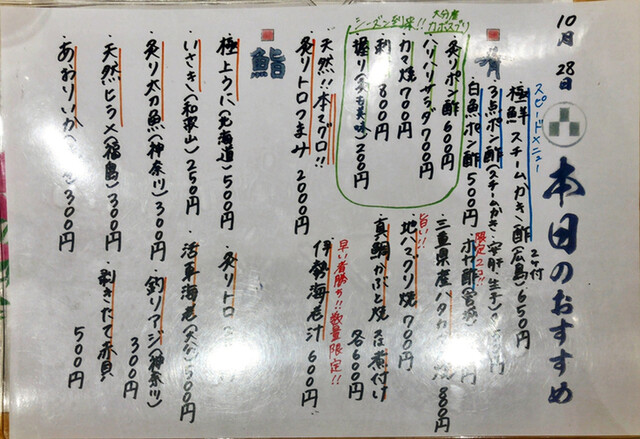 10月28日
本日のおすすめ
スピードメニュー
極鮮魚スチームかき酢(広島)650円
2ヶ付
3点ポン酢(スチームかき・安肝・生子)
白魚ポン酢500円
限定2コ!!
ホヤ酢(宮城)
三重県産ハタ 800円
旨い!!
地ハマグリ焼700円
真鯛かぶと焼又は煮付け各600円
早い者勝ち!!数量限定!!
伊勢海老汁600円
肴
シーズン到来!!
大分産カボスブリ
炙りポン酢600円
パリパリサラダ700円
カマ焼700円
刺 800円
握り(炙も美味)200円
天然!!本マグロ!!
炙りトロつまみ2000円
鮨
極上うに(北海道)500円
炙りトロ
いさき(和歌山)250円
活車海老(大分)500円
炙り太刀魚(神奈川)300円
釣りアジ(神奈川)300円
天然ヒラメ(福島)300円
剥きたて赤貝500円
あおりいか 300円